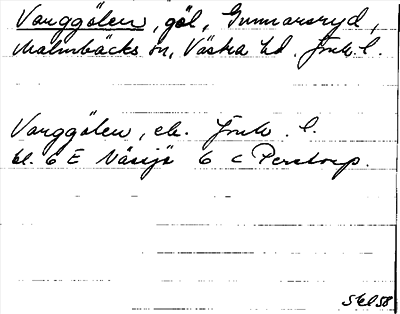 Varggölen, göl, Gunnarsryd,
Malmbäcks sn, Västra hd. Jönk. l.
Varggölen, ek. Jönk. l.
bl. 6 E Nässjö 6 c Perstorp.